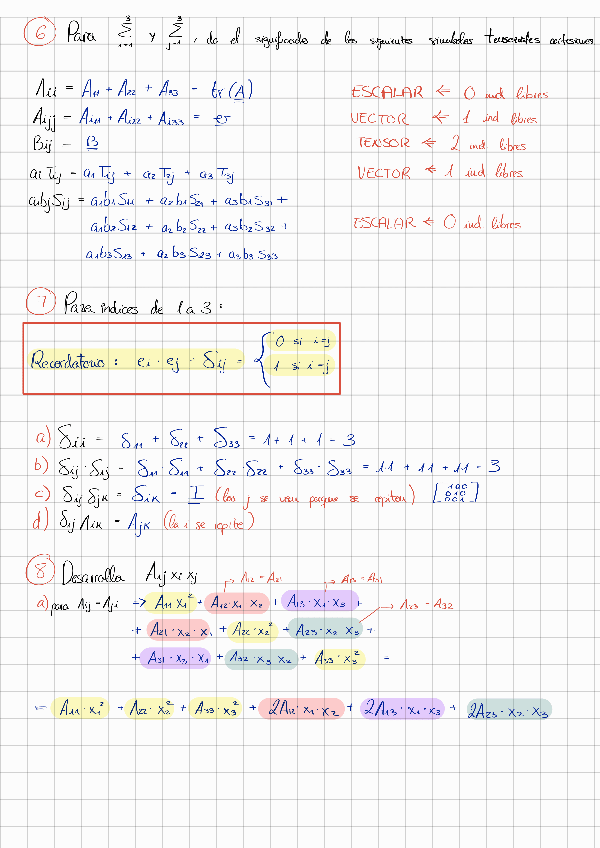 6 Para Σ³ᵢ₌₁ y Σ³ⱼ₌₁, da el significado de los siguientes simbolos tensoriales cartesianos
Aii = A11 + A22 + A33 = tr(A) ESCALAR ← 0 ind libres
Aijj = Ai11 + Ai22 + Ai33 = VECTOR ← 1 ind libres
Bij = B TENSOR ← 2 ind libres
ai Tij = a1 T1j + a2 T2j + a3 T3j VECTOR ← 1 ind libres
aibjSij = a1b1S11 + a2b1S21 + a3b1S31 +
a1b2S12 + a2b2S22 + a3b2S32 + ESCALAR ← 0 ind libres
a1b3S13 + a2b3S23 + a3b3S33
7 Para indices de 1 a 3:
Recordatorio: ei · ej = δij = { 0 si i≠j
1 si i=j
a) δii = δ11 + δ22 + δ33 = 1 + 1 + 1 = 3
b) δij·δij = δ11·δ11 + δ22·δ22 + δ33·δ33 = 1·1 + 1·1 + 1·1 = 3
c) δij δjk = δik = I (las j se van porque se repiten) [100 010 001]
d) δij Aik = Ajk (la i se repite)
8 Desarrolla Aij xi xj
→ A12 = A21 → A13 = A31
a) para Aij = Aji → A11 x1² + A12·x1·x2 + A13·x1·x3 + → A23 = A32
+ A21·x2·x1 + A22·x2² + A23·x2·x3 +
+ A31·x3·x1 + A32·x3·x2 + A33·x3² =
= A11·x1² + A22·x2² + A33·x3² + 2A12·x1·x2 + 2A13·x1·x3 + 2A23·x2·x3